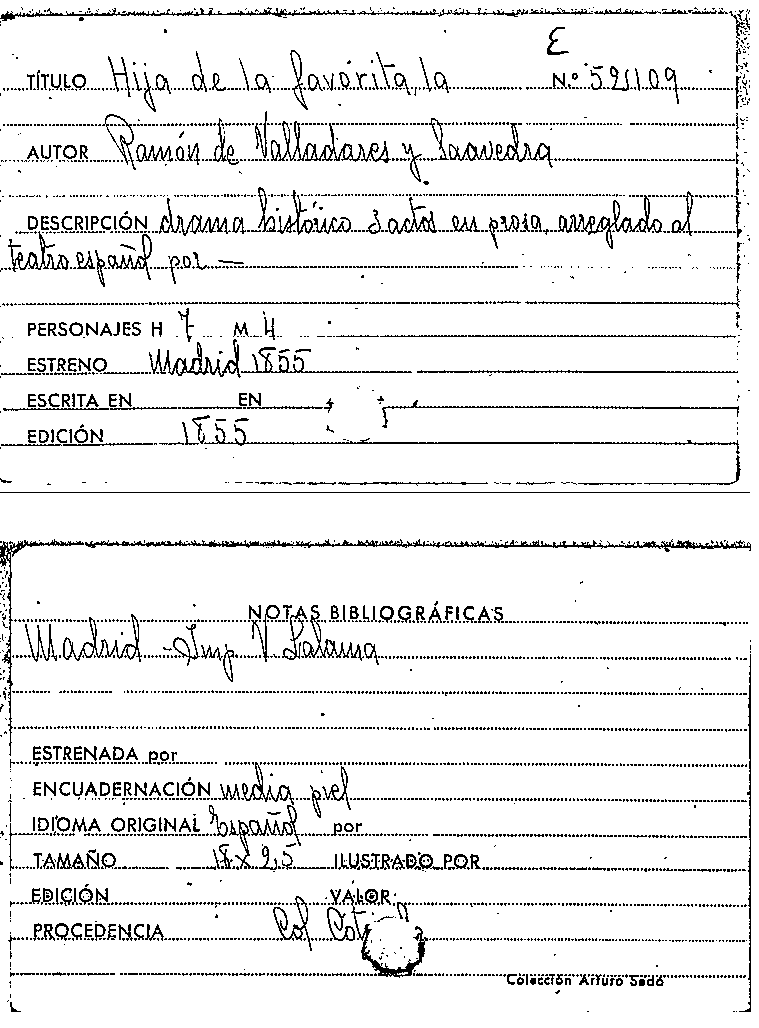 E
TÍTULO Hija de la favorita, la N.º 59109
AUTOR Ramón de Valladares y Saavedra
DESCRIPCIÓN drama histórico 3 actos en prosa, arreglado al
teatro español por —
PERSONAJES H 7 M 4
ESTRENO Madrid 1855
ESCRITA EN EN
EDICIÓN 1855
NOTAS BIBLIOGRÁFICAS
Madrid - Imp V Lalama
ESTRENADA por
ENCUADERNACIÓN media piel
IDIOMA ORIGINAL Español por
TAMAÑO 18 x 9,5 ILUSTRADO POR
EDICIÓN VALOR
PROCEDENCIA Col
Colección Arturo Sedó